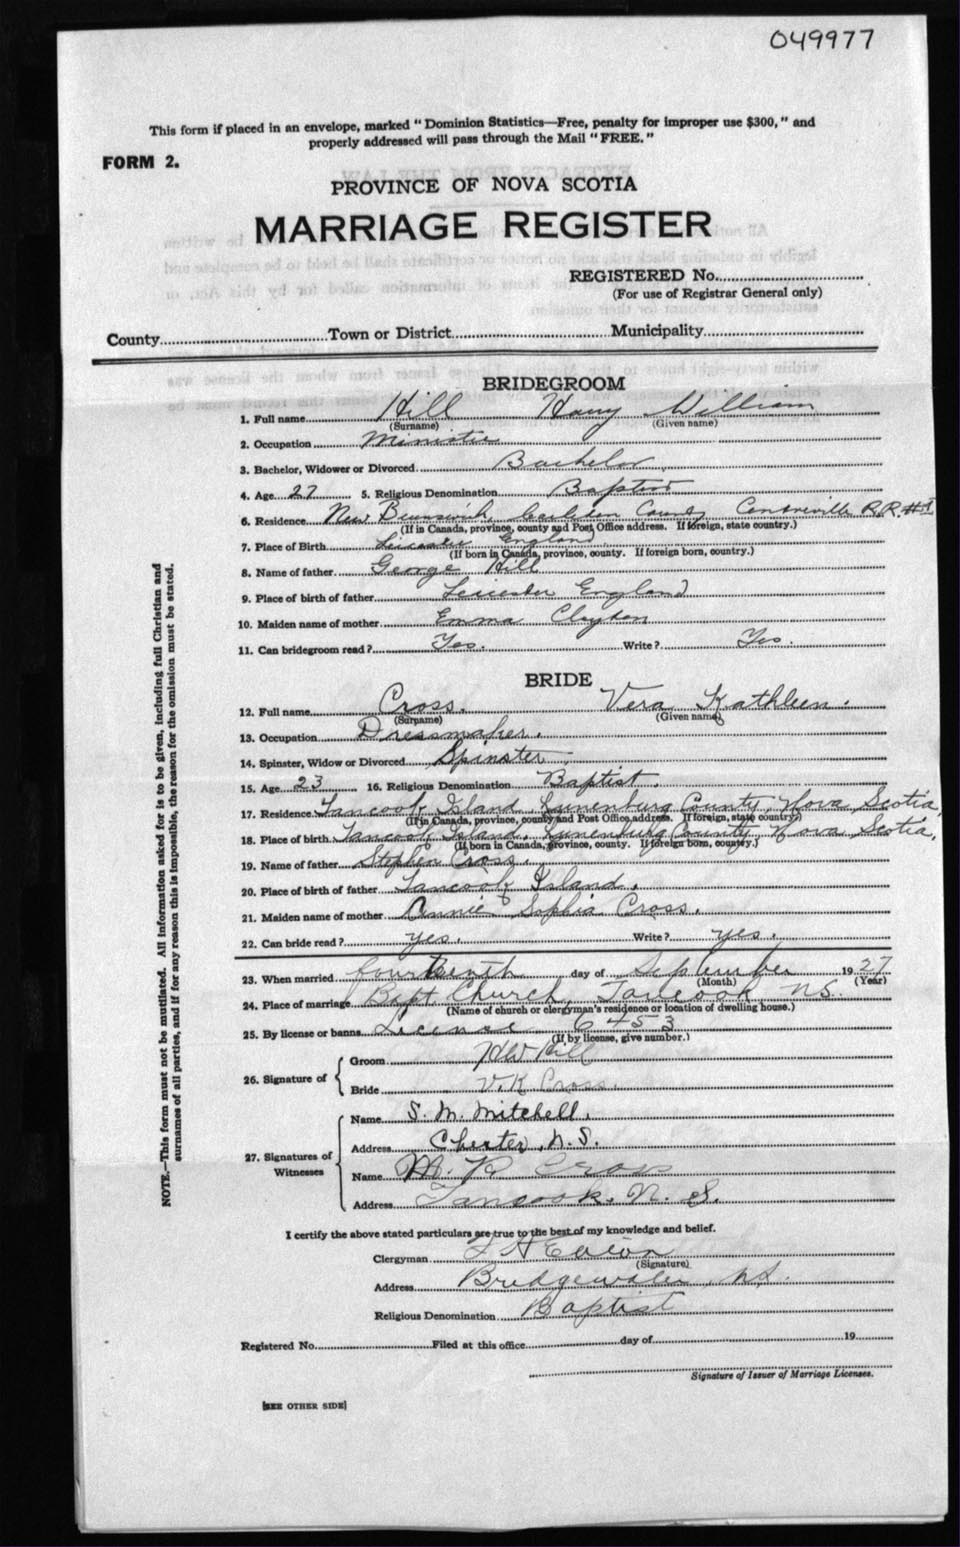 049977
This form if placed in an envelope, marked "Dominion Statistics—Free, penalty for improper use $300," and
properly addressed will pass through the Mail "FREE."
FORM 2.
PROVINCE OF NOVA SCOTIA
MARRIAGE REGISTER
REGISTERED No.
(For use of Registrar General only)
County Town or District Municipality
BRIDEGROOM
1. Full name Hill Harry William
(Surname) (Given name)
2. Occupation Minister
3. Bachelor, Widower or Divorced Bachelor
4. Age 27 5. Religious Denomination Baptist
6. Residence New Brunswick Carleton County Centreville R.R. #1
(If in Canada, province, county and Post Office address. If foreign, state country.)
7. Place of Birth Leicester England
(If born in Canada, province, county. If foreign born, country.)
8. Name of father George Hill
9. Place of birth of father Leicester England
10. Maiden name of mother Emma Clayton
11. Can bridegroom read? Yes. Write? Yes.
BRIDE
12. Full name Cross. Vera Kathleen.
(Surname) (Given name)
13. Occupation Dressmaker.
14. Spinster, Widow or Divorced Spinster
15. Age 23 16. Religious Denomination Baptist.
17. Residence Tancook Island, Lunenburg County, Nova Scotia,
(If in Canada, province, county and Post Office address. If foreign, state country)
18. Place of birth Tancook Island, Lunenburg County, Nova Scotia,
(If born in Canada, province, county. If foreign born, country.)
19. Name of father Stephen Cross.
20. Place of birth of father Tancook Island.
21. Maiden name of mother Annie Sophia Cross.
22. Can bride read? yes. Write? yes.
23. When married fourteenth day of September 1927
(Month) (Year)
24. Place of marriage Bapt Church, Tancook, N.S.
(Name of church or clergyman's residence or location of dwelling house.)
25. By license or banns License 6453
(If by license, give number.)
26. Signature of
Groom HW Hill
Bride V.K Cross.
27. Signatures of Witnesses
Name S. M. Mitchell.
Address Chester, N.S.
Name M. R. Cross
Address Tancook. N. S.
I certify the above stated particulars are true to the best of my knowledge and belief.
Clergyman
(Signature)
Address Bridgewater, N.S.
Religious Denomination Baptist
Registered No. Filed at this office day of 19
Signature of Issuer of Marriage Licenses.
[SEE OTHER SIDE]
NOTE.—This form must not be mutilated. All information asked for is to be given, including full Christian and
surnames of all parties, and if for any reason this is impossible, the reason for the omission must be stated.